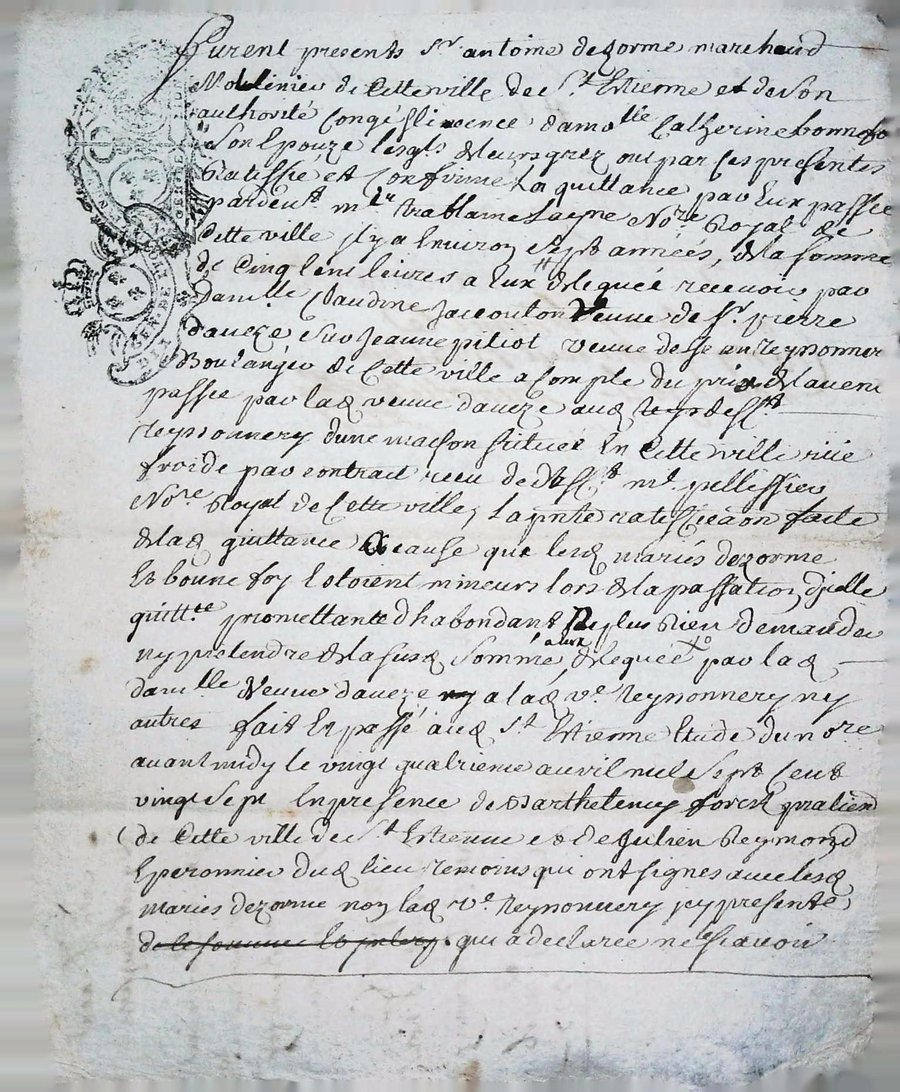 furent presents Sr antoine dezorme marchand
Molinier de Cette ville de St Estienne et de Son
authorité Congé & licence damolle Catherine bonnefo
Son Epouze lesqls de leurs grez ont par Ces presentes
Ratiffié et Confirmé La quittance par Eux passée
pardevt mr tablaine Layne Nore Royal de
Cette ville il y a Environ sept années, de la somme
de Cinq Cens livres a Eux deleguée recevoir par
damlle Claudine Jacouton Veuve de Sr pierre
daveze sur Jeanne pitiot veuve de Jean Reynonner
Boulanger de Cette ville a Compte du prix de la vente
passée par lad veuve daveze aud
Reynonnery dune maison scituée En Cette ville rüe
froide par contrat receu dud mr pellissier
Nore Royal de Cette ville, La pnte ratiffication faite
de lad quittance a cause que lesd mariés dezorme
Et bonne foy Estoient mineurs lors de la passation dicelle
quittce promettants dhabondant Ne plus Rien demander
ny pretendre de la susd somme a eux deleguée par lad
damlle Veuve daveze ny a lad ve Reynonnery ny
autres fait Et passé aud St Estienne Etude du nore
avant midy le vingt quatrieme avril mil sept Cent
vingt sept En presence de Barthelemy forest praticien
de Cette ville de St Estienne et de Julien Reymond
Eperonnier dud lieu temoins qui ont signés avec lesd
mariés dezorme non lad ve Reynonnery icy presente
qui a declarée ne le scavoir